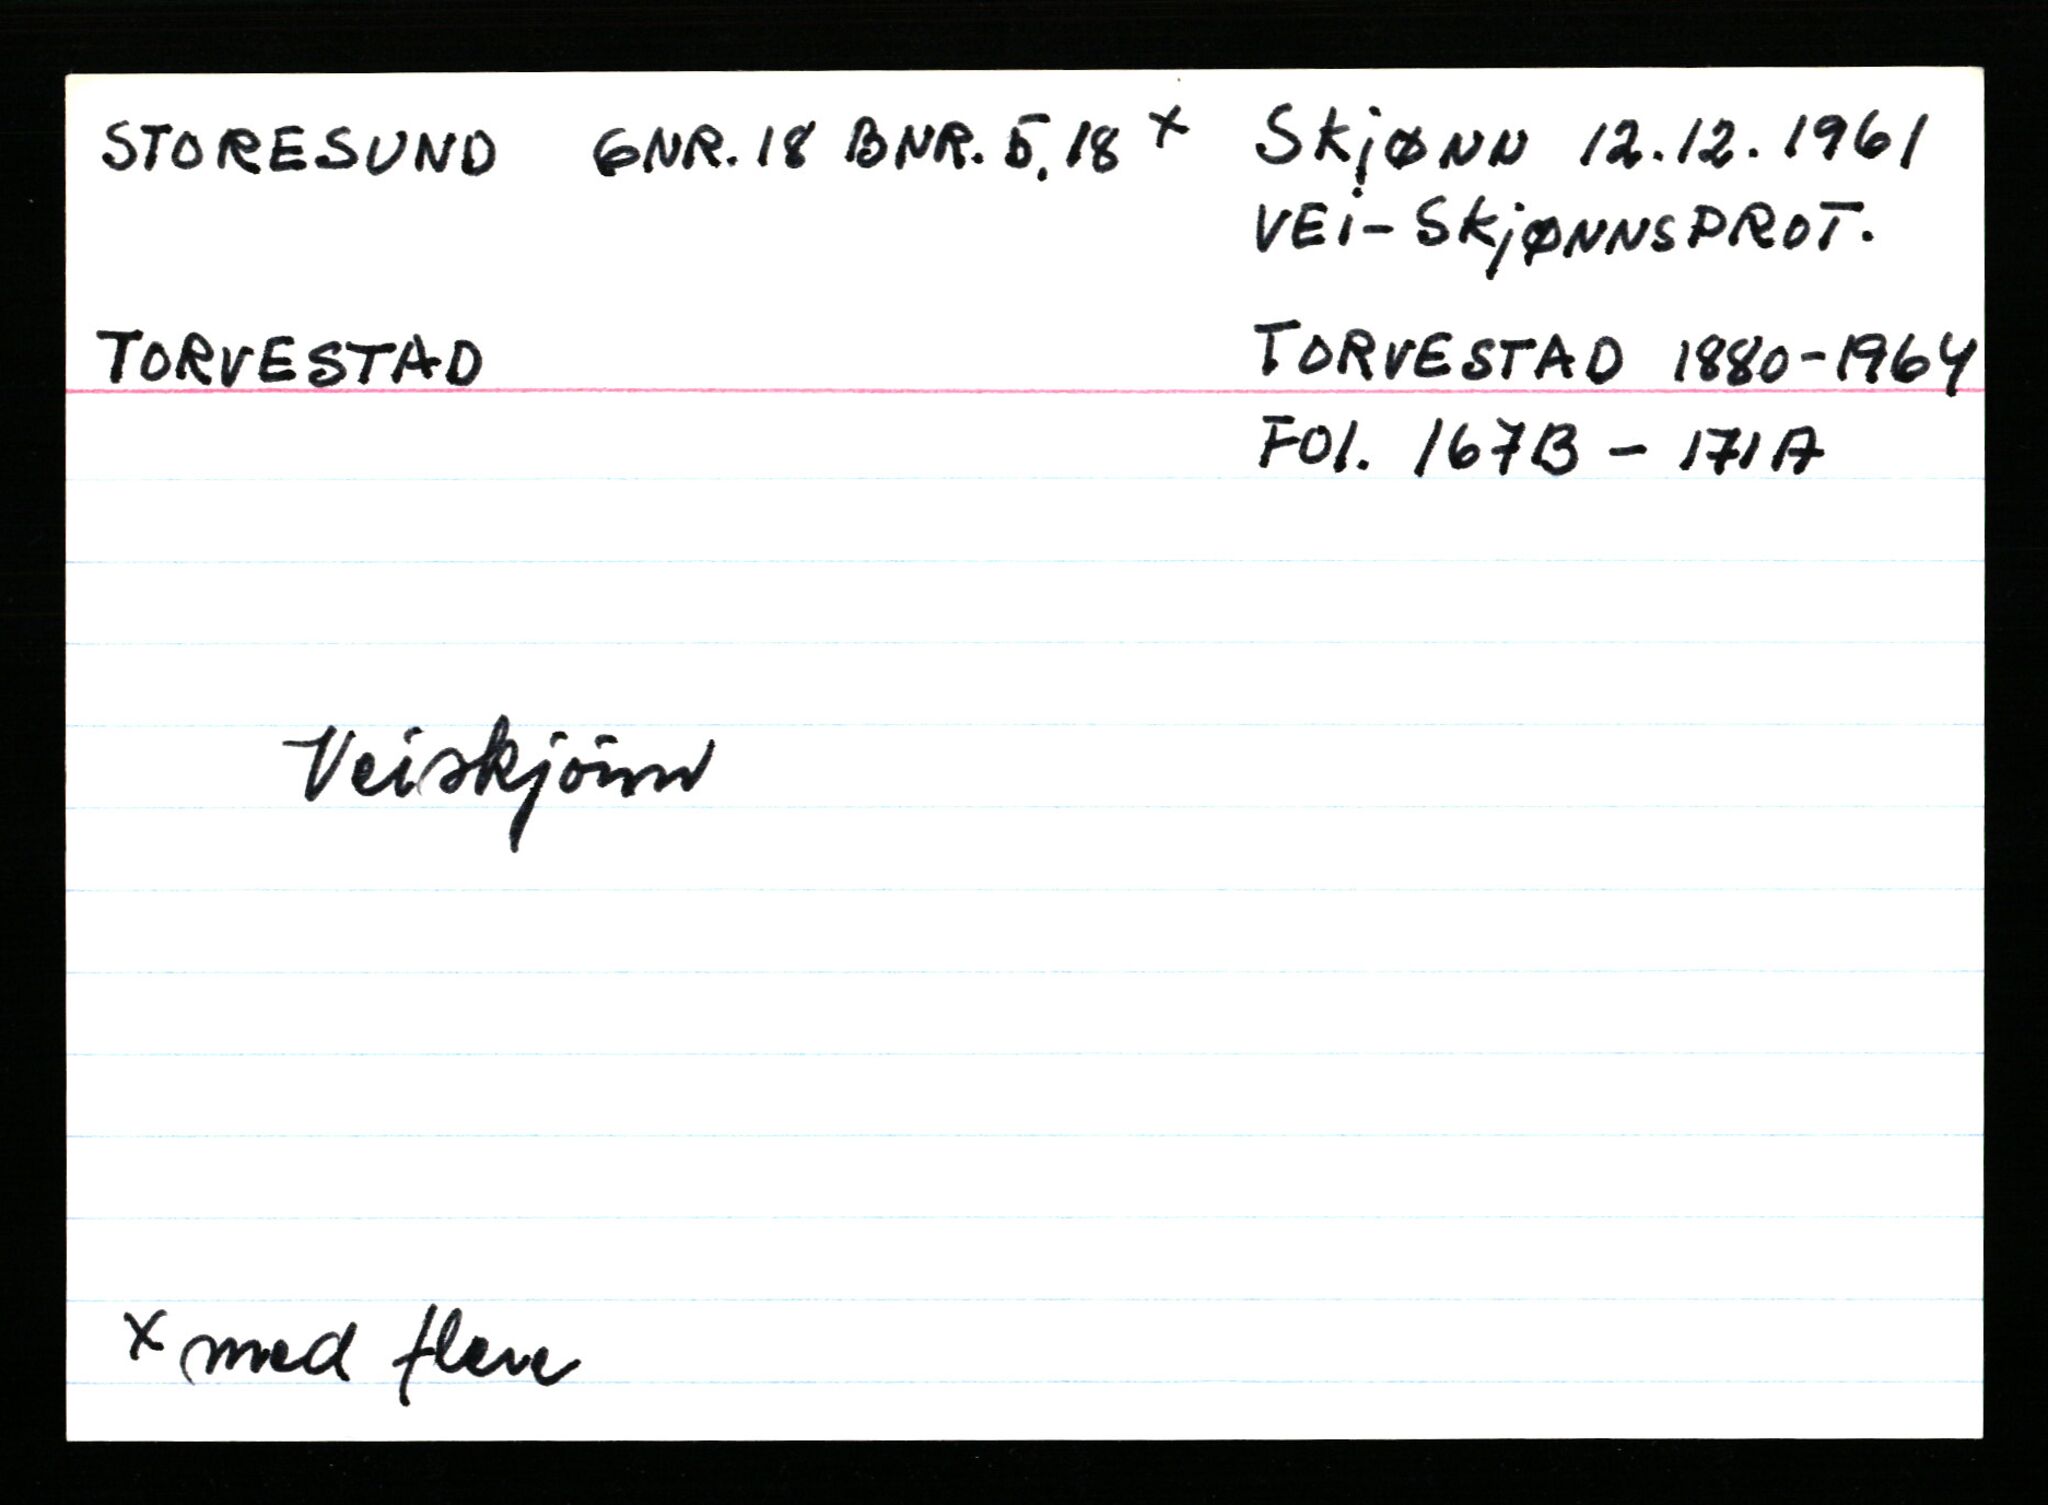 STORESUND GNR. 18 BNR. 5, 18 x Skjønn 12.12.1961
VEi-SkjøNNSPROT.
TORVESTAD TORVESTAD 1880-1964
FOl. 167B - 171A
Veiskjönn
x med flere